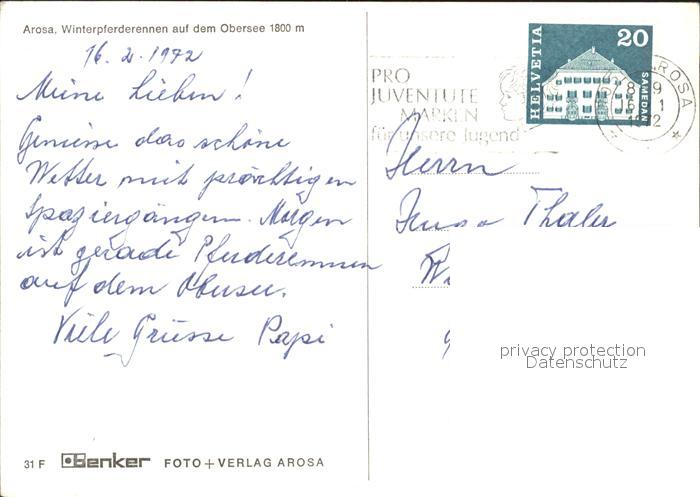 Arosa, Winterpferderennen auf dem Obersee 1800 m
16.2.1972
Meine Lieben!
Geniesse das schöne
Wetter mit prächtigen
Spaziergängen. Morgen
ist gerade Pferderennen
auf dem Obersee.
Viele Grüsse Papi
31 F Benker FOTO + VERLAG AROSA
HELVETIA
20
SAMEDAN
PRO
JUVENTUTE
MARKEN
für unsere Jugend
AROSA
Herrn
Thaler
privacy protection
Datenschutz